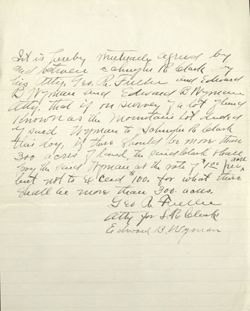 It is hereby mutually agreed by
and between Schuyler R. Clark by
his Atty. Geo. R. Fuller and Edward
B. Wyman and Edward B. Wyman
Atty. that if on survey of a lot of land
known as the Mountain lot
of said Wyman to Schuyler R. Clark
this day, if there should be more than
300 acres of land, the said Clark shall
pay the said Wyman at the rate of $1.00 per acre
but not to exceed $100. for what there
shall be more than 300 acres.
Geo R Fuller
Atty for S. R. Clark
Edward B. Wyman